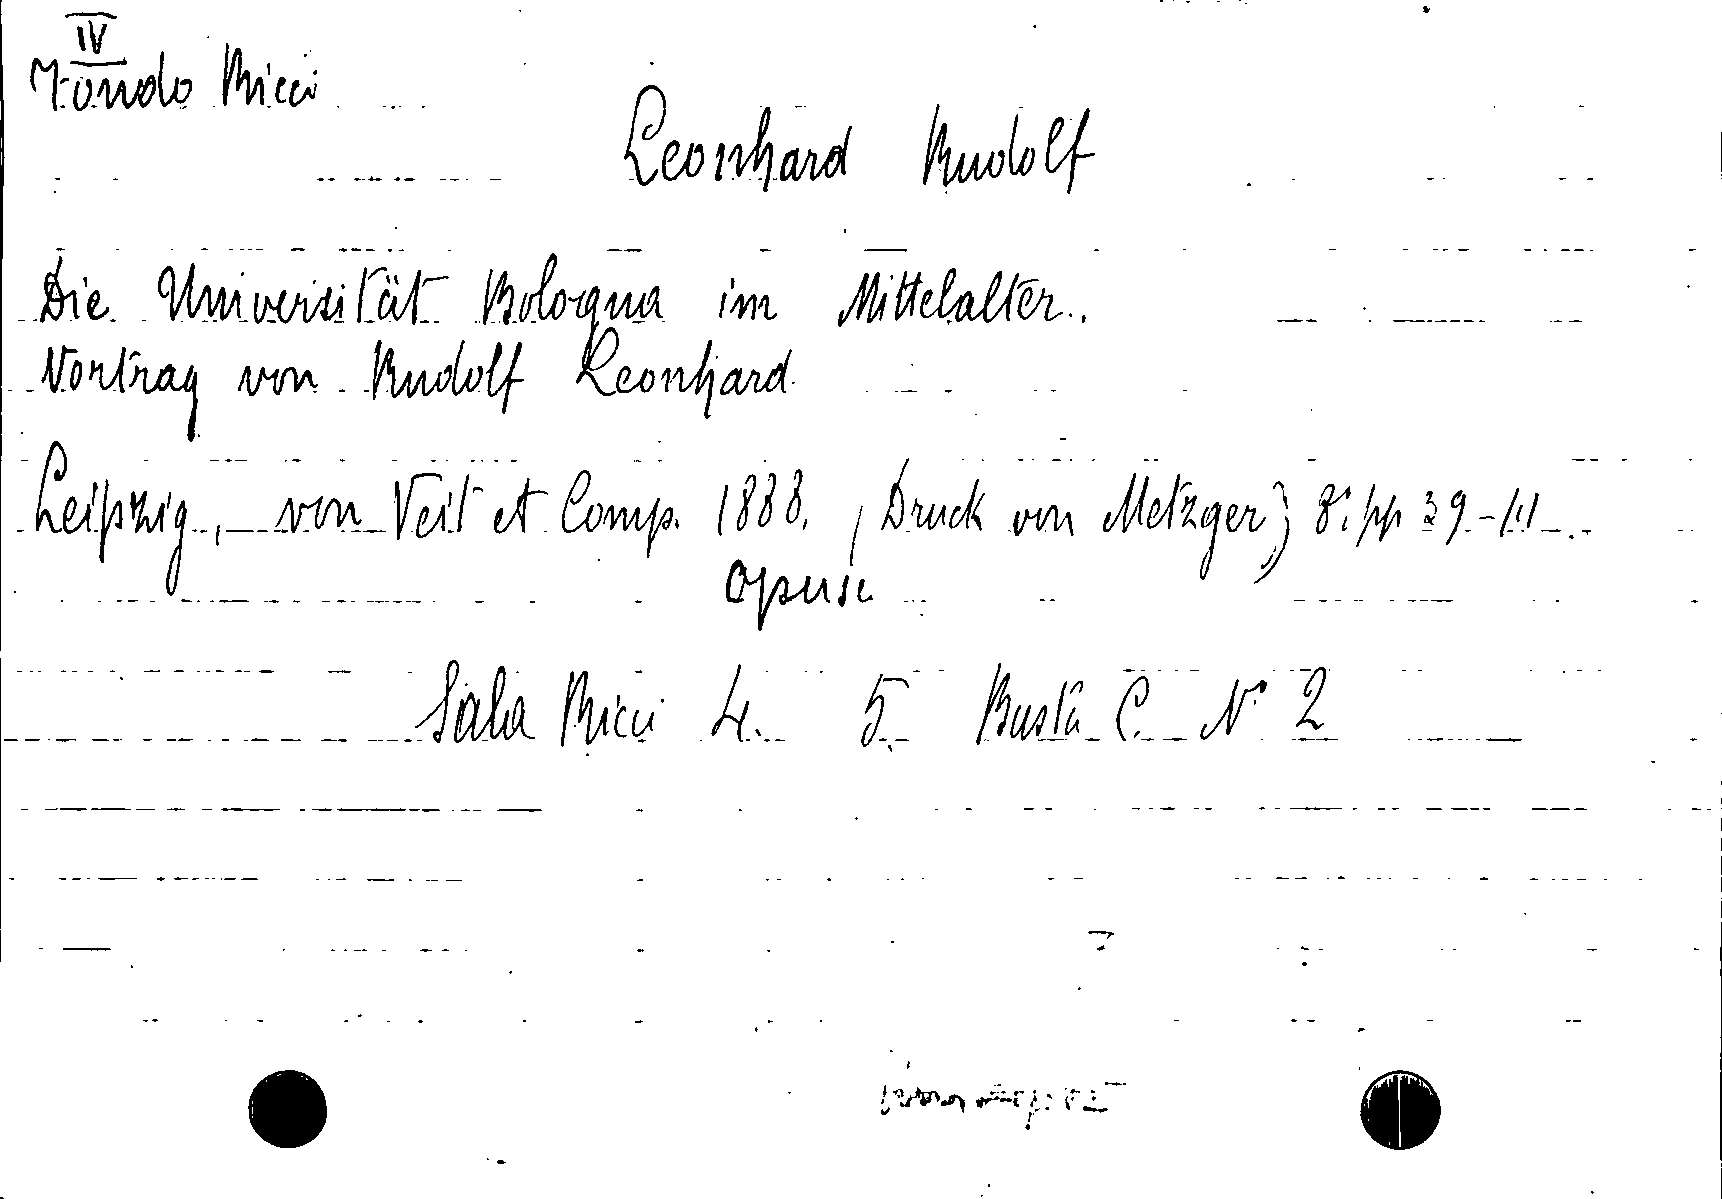 IV
Fondo Ricci
Leonhard Rudolf
Die Universität Bologna im Mittelalter.
Vortrag von Rudolf Leonhard
Leipzig, von Veit et Comp. 1888. (Druck von Metzger) 8° pp 39-III.
opusc
Sala Ricci 4. 5. Busta C. N° 2